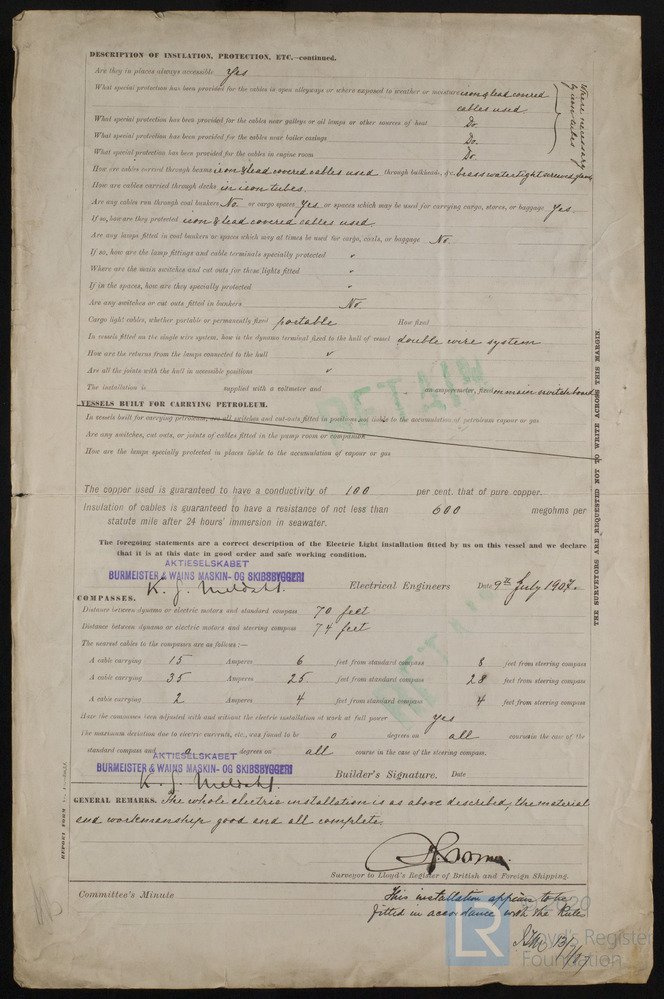 DESCRIPTION OF INSULATION, PROTECTION, ETC.—continued.
Are they in places always accessible Yes
What special protection has been provided for the cables in open alleyways or where exposed to weather or moisture iron & lead covered
cables used
What special protection has been provided for the cables near galleys or oil lamps or other sources of heat Do.
What special protection has been provided for the cables near boiler casings Do.
What special protection has been provided for the cables in engine room Do.
where necessary
in iron tubes
How are cables carried through beams iron & lead covered cables used through bulkheads, &c. brass watertight screwed glands
How are cables carried through decks in iron tubes.
Are any cables run through coal bunkers No. or cargo spaces Yes or spaces which may be used for carrying cargo, stores, or baggage Yes.
If so, how are they protected iron & lead covered cables used
Are any lamps fitted in coal bunkers or spaces which may at times be used for cargo, coals, or baggage No.
If so, how are the lamp fittings and cable terminals specially protected "
Where are the main switches and cut outs for these lights fitted "
If in the spaces, how are they specially protected "
Are any switches or cut outs fitted in bunkers No
Cargo light cables, whether portable or permanently fixed portable How fixed
In vessels fitted on the single wire system, how is the dynamo terminal fixed to the hull of vessel double wire system
How are the returns from the lamps connected to the hull "
Are all the joints with the hull in accessible positions "
The installation is supplied with a voltmeter and an amperemeter, fixed on main switchboard
RETAIN
VESSELS BUILT FOR CARRYING PETROLEUM.
In vessels built for carrying petroleum, are all switches and cut-outs fitted in positions not liable to the accumulation of petroleum vapour or gas
Are any switches, cut outs, or joints of cables fitted in the pump room or companion
How are the lamps specially protected in places liable to the accumulation of vapour or gas
The copper used is guaranteed to have a conductivity of 100 per cent. that of pure copper.
Insulation of cables is guaranteed to have a resistance of not less than 600 megohms per
statute mile after 24 hours' immersion in seawater.
The foregoing statements are a correct description of the Electric Light installation fitted by us on this vessel and we declare
that it is at this date in good order and safe working condition.
AKTIESELSKABET
BURMEISTER & WAINS MASKIN- OG SKIBSBYGGERI
Electrical Engineers Date 9th July 1907.
COMPASSES.
Distance between dynamo or electric motors and standard compass 70 feet
Distance between dynamo or electric motors and steering compass 74 feet
The nearest cables to the compasses are as follows:—
A cable carrying 15 Amperes 6 feet from standard compass 8 feet from steering compass
A cable carrying 35 Amperes 25 feet from standard compass 28 feet from steering compass
A cable carrying 2 Amperes 4 feet from standard compass 4 feet from steering compass
RETAIN
Have the compasses been adjusted with and without the electric installation at work at full power yes
The maximum deviation due to electric currents, etc., was found to be 0 degrees on all course in the case of the
standard compass and 0 degrees on all course in the case of the steering compass.
AKTIESELSKABET
BURMEISTER & WAINS MASKIN- OG SKIBSBYGGERI
Builder's Signature. Date
GENERAL REMARKS. The whole electric installation is as above described, the material
and workmanship good and all complete.
Surveyor to Lloyd's Register of British and Foreign Shipping.
Committee's Minute
This installation appears to be
fitted in accordance with the Rule
13/7/07
THE SURVEYORS ARE REQUESTED NOT TO WRITE ACROSS THIS MARGIN.
REPORT FORM
© 2020
LR
Lloyd's Register
Foundation